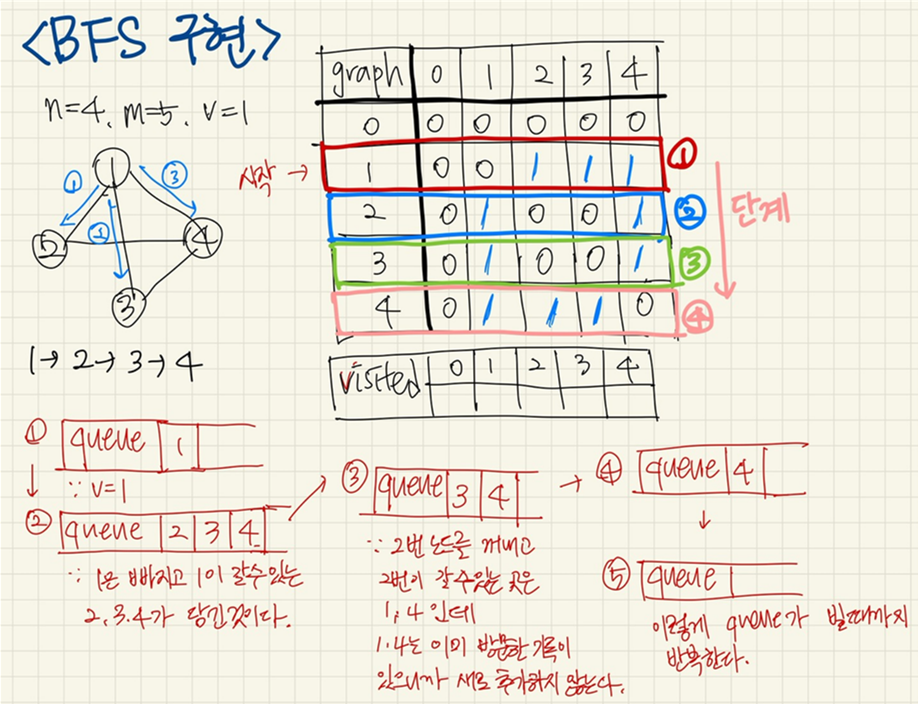 <BFS 구현>
n=4, m=5, v=1
1
① ③
②
5 4
3
1→2→3→4
graph 0 1 2 3 4
0 0 0 0 0 0
시작 → 1 0 0 1 1 1 ①
2 0 1 0 0 1 ②
3 0 1 0 0 1 ③
4 0 1 1 1 0 ④
단계
visited 0 1 2 3 4
① queue 1
∵ v=1
② queue 2 3 4
∵ 1은 빠지고 1이 갈수있는
2,3,4가 담긴것이다.
③ queue 3 4
∵ 2번 노드를 꺼내고
2번이 갈수있는 곳은
1,4 인데
1,4는 이미 방문한 기록이
있으니까 새로 추가하지 않는다.
④ queue 4
⑤ queue
이렇게 queue가 빌때까지
반복한다.